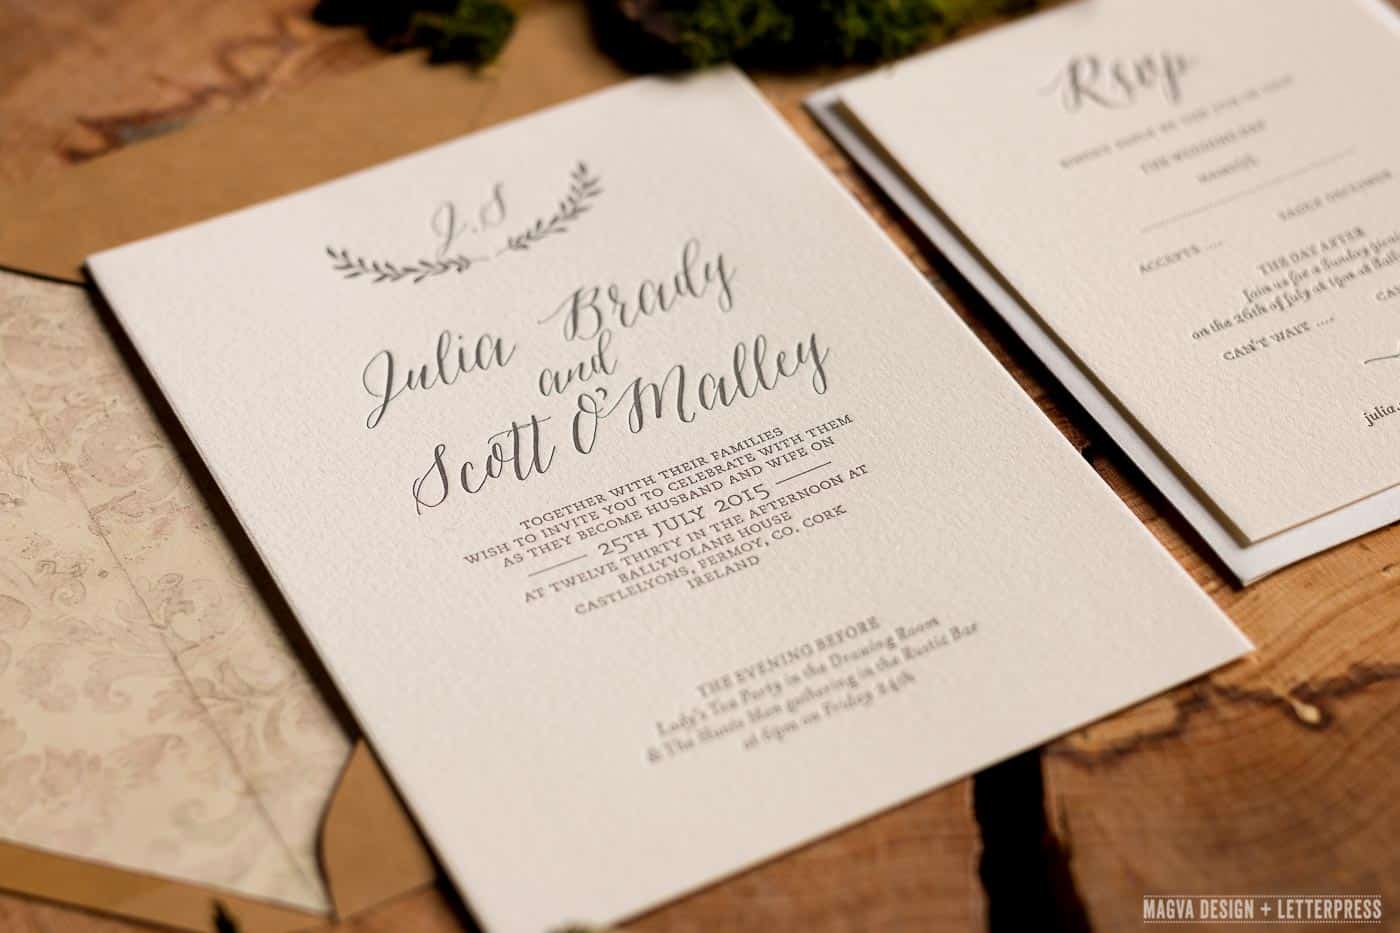 J.S
Julia Brady
and
Scott O'Malley
TOGETHER WITH THEIR FAMILIES
WISH TO INVITE YOU TO CELEBRATE WITH THEM
AS THEY BECOME HUSBAND AND WIFE ON
25TH JULY 2015
AT TWELVE THIRTY IN THE AFTERNOON AT
BALLYVOLANE HOUSE
CASTLELYONS, FERMOY, CO. CORK
IRELAND
THE EVENING BEFORE
Lady's Tea Party in the Drawing Room
& The Manly Men gathering in the Rustic Bar
at 6pm on Friday 24th
Rsvp
ACCEPTS ....
THE DAY AFTER
Join us for a Sunday
on the 26th of July at 1pm at
CAN'T WAIT ....
julia
MAGVA DESIGN + LETTERPRESS